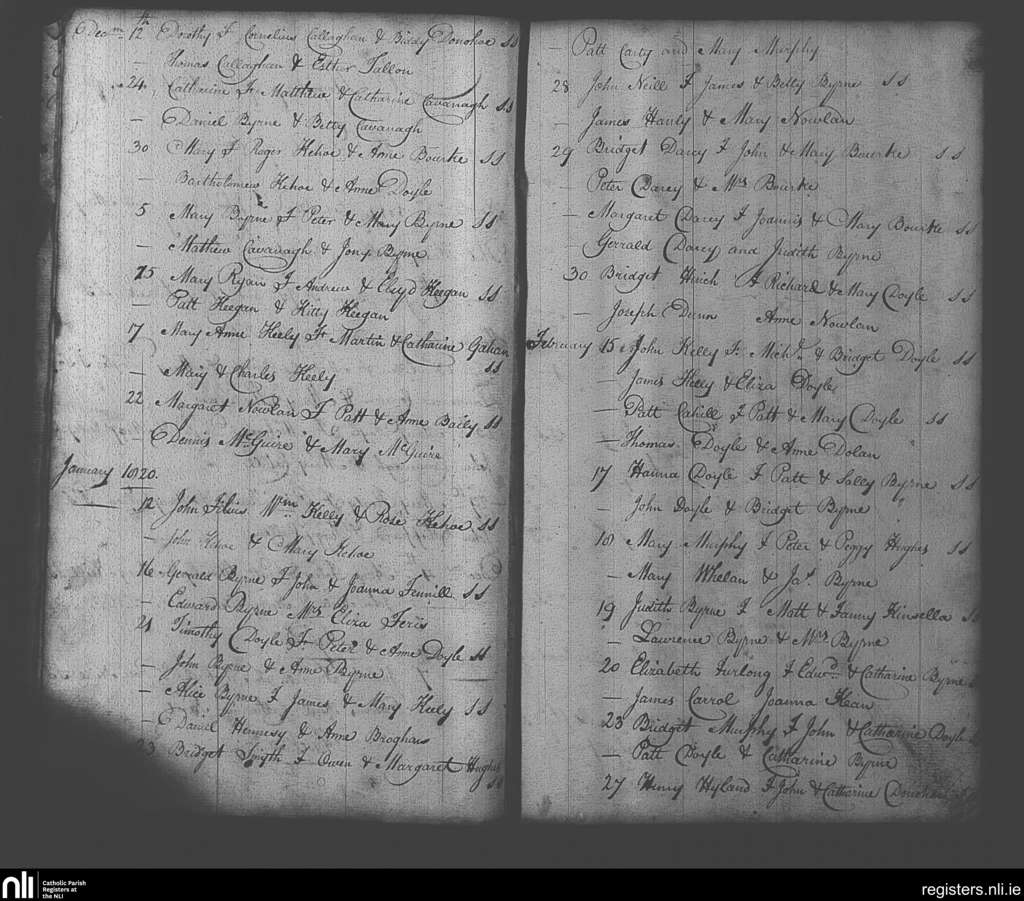 Decm. 12th Dorothy F Cornelius Callaghan & Biddy Donohoe SS
— Thomas Callaghan & Esther Fallon
24 Catharine F Matthew & Catharine Cavanagh SS
— Daniel Byrne & Betty Cavanagh
30 Mary F Roger Kehoe & Anne Bourke SS
— Bartholomew Kehoe & Anne Doyle
5 Mary Byrne F Peter & Mary Byrne SS
— Mathew Cavanagh & Jony Byrne
15 Mary Ryan F Andrew & Keegan SS
Patt Keegan & Kitty Keegan
17 Mary Anne Keely F Martin & Catharine Gahan
SS
— Mary & Charles Keely
22 Margaret Nowlan F Patt & Anne Baily SS
— Dennis McGuire & Mary McGuire
January 1820.
12 John Filius Wm Kelly & Rose Kehoe SS
— John Kehoe & Mary Kehoe
16 Gerrald Byrne F John & Joanna Fennill SS
— Edward Byrne Mrs Eliza Feris
21 Timothy Doyle F Peter & Anne Doyle SS
— John Byrne & Anne Byrne
— Alice Byrne F James & Mary Keely SS
— Daniel Hennesy & Anne Broghan
23 Bridget Smyth F Owen & Margaret Hughes
SS
— Patt Carty and Mary Murphy
28 John Neill F James & Betty Byrne SS
— James Hanly & Mary Nowlan
29 Bridget Darcy F John & Mary Bourke SS
— Peter Darcy & Mrs Bourke
— Margaret Darcy F Joannis & Mary Bourke SS
— Gerrald Darcy and Judith Byrne
30 Bridget Hinch F Richard & Mary Doyle SS
— Joseph Dunn Anne Nowlan
February 15 John Kelly F. Michl. & Bridget Doyle SS
— James Kelly & Eliza Doyle
— Patt Cahill F Patt & Mary Doyle SS
— Thomas Doyle & Anne Dolan
17 Hanna Doyle F Patt & Sally Byrne SS
— John Doyle & Bridget Byrne
18 Mary Murphy F Peter & Peggy Hughes SS
— Mary Whelan & Jas. Byrne
19 Judith Byrne F Matt & Fanny Kinsella SS
— Lawrence Byrne & Mrs Byrne
20 Elizabeth Furlong F Edwd. & Catharine Byrne
— James Carrol Joanna Kean
23 Bridget Murphy F John & Catharine Doyle
— Patt Doyle & Catharine Byrne
27 Henry Hyland F John & Catharine
nli Catholic Parish
Registers at
the NLI
registers.nli.ie